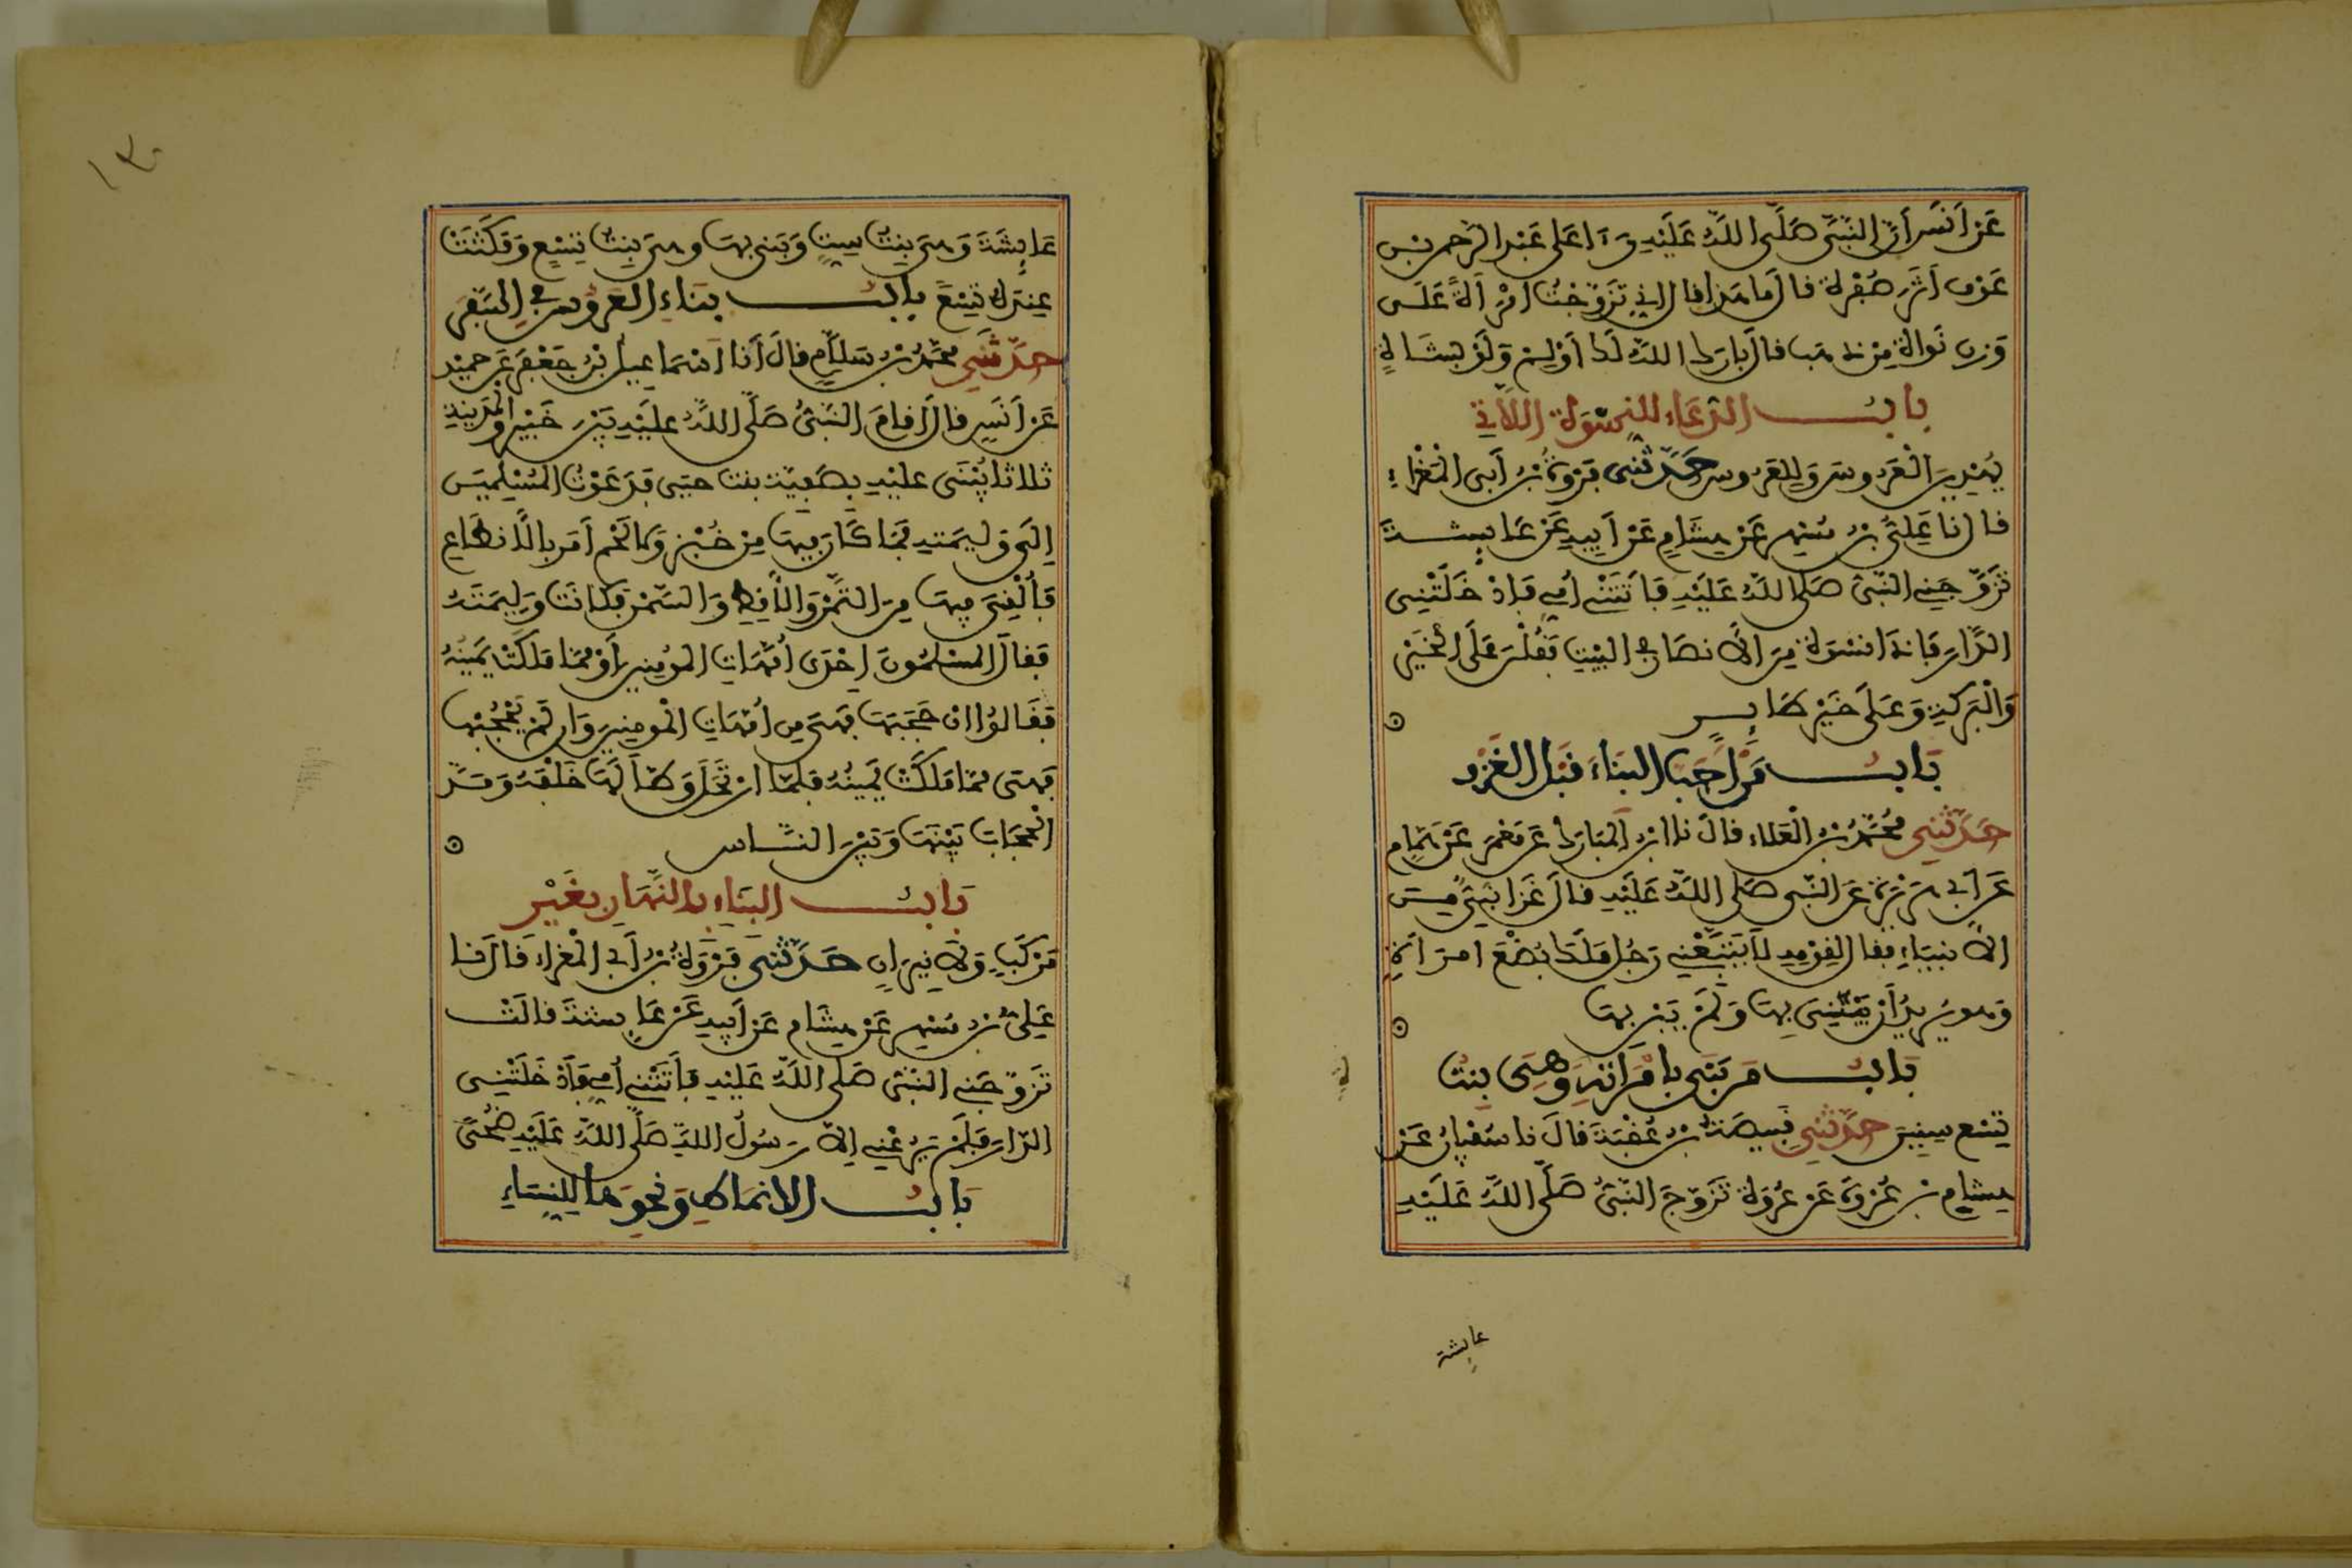 عَنْ اَنَسٍ اَنَّ النَّبِىَّ صَلَّى اللَّهُ عَلَيْهِ رَءَا عَلَى عَبْدِ الرَّحْمٰنِ بْنِ
عَوْفٍ اَثَرَ صُفْرَةٍ فَالَ مَا هَذَا فَالَ اِنِّى تَزَوَّجْتُ امْرَأَةً عَلَى
وَزْنِ نَوَاةٍ مِنْ ذَهَبٍ فَالَ بَارَكَ اللَّهُ لَكَ أَوْلِمْ وَلَوْ بِشَاةٍ
بَابُ الدُّعَاءِ لِلنِّسْوَةِ اللَّاتِى
يُهْدِينَ الْعَرُوسَ وَلِلْعَرُوسِ حَدَّثَنِى فَرْوَةُ بْنُ أَبِى الْمَغْرَاءِ
فَالَ نَا عَلِىُّ بْنُ مُسْهِرٍ عَنْ هِشَامٍ عَنْ أَبِيهِ عَنْ عَايِشَةَ
تَزَوَّجَنِى النَّبِىُّ صَلَّى اللَّهُ عَلَيْهِ فَأَتَتْنِى أُمِّى فَأَدْخَلَتْنِى
الدَّارَ فَإِذَا نِسْوَةٌ مِنَ الْأَنْصَارِ فِى الْبَيْتِ فَفُلْنَ عَلَى الْخَيْرِ
وَالْبَرَكَةِ وَعَلَى خَيْرِ طَايِرٍ
بَابُ مَنْ اَحَبَّ الْبِنَاءَ فَبْلَ الْغَزْوِ
حَدَّثَنِى مُحَمَّدُ بْنُ الْعَلَاءِ فَالَ نَا ابْنُ الْمُبَارَكِ عَنْ مَعْمَرٍ عَنْ هَمَّامٍ
عَنْ أَبِى هُرَيْرَةَ عَنِ النَّبِىِّ صَلَّى اللَّهُ عَلَيْهِ فَالَ غَزَا نَبِىٌّ مِنَ
الْأَنْبِيَاءِ فَفَالَ لِفَوْمِهِ لَا يَتْبَعْنِى رَجُلٌ مَلَكَ بُضْعَ امْرَأَةٍ
وَهُوَ يُرِيدُ أَنْ يَبْنِىَ بِهَا وَلَمْ يَبْنِ بِهَا
بَابُ مَنْ بَنَى بِامْرَأَتِهِ وَهِىَ بِنْتُ
تِسْعِ سِنِينَ حَدَّثَنِى فَبِيصَةُ بْنُ عُفْبَةَ فَالَ نَا سُفْيَانُ عَنْ
هِشَامِ بْنِ عُرْوَةَ عَنْ عُرْوَةَ تَزَوَّجَ النَّبِىُّ صَلَّى اللَّهُ عَلَيْهِ
عايشة
١٣٠
عَايِشَةَ وَهِىَ بِنْتُ سِتٍّ وَبَنَى بِهَا وَهِىَ بِنْتُ تِسْعٍ وَمَكَثَتْ
عِنْدَهُ تِسْعًا بَابُ بِنَاءِ الْعَرُوسِ فِى السَّفَرِ
حَدَّثَنِى مُحَمَّدُ بْنُ سَلَامٍ فَالَ أَنَا اسْمَاعِيلُ بْنُ جَعْفَرٍ عَنْ حُمَيْدٍ
عَنْ أَنَسٍ فَالَ أَفَامَ النَّبِىُّ صَلَّى اللَّهُ عَلَيْهِ بَيْنَ خَيْبَرَ وَالْمَدِينَةِ
ثَلَاثًا يُبْنَى عَلَيْهِ بِصَفِيَّةَ بِنْتِ حُيَىٍّ فَدَعَوْتُ الْمُسْلِمِينَ
اِلَى وَلِيمَتِهِ فَمَا كَانَ فِيهَا مِنْ خُبْزٍ وَلَا لَحْمٍ أَمَرَ بِالْأَنْطَاعِ
فَأُلْفِىَ فِيهَا مِنَ التَّمْرِ وَالْأَفِطِ وَالسَّمْنِ فَكَانَتْ وَلِيمَتَهُ
فَفَالَ الْمُسْلِمُونَ اِحْدَى أُمَّهَاتِ الْمُؤْمِنِينَ أَوْ مِمَّا مَلَكَتْ يَمِينُهُ
فَفَالُوا اِنْ حَجَبَهَا فَهِىَ مِنْ أُمَّهَاتِ الْمُومِنِينَ وَاِنْ لَمْ يَحْجُبْهَا
فَهِىَ مِمَّا مَلَكَتْ يَمِينُهُ فَلَمَّا ارْتَحَلَ وَطَّأَ لَهَا خَلْفَهُ وَمَدَّ
الْحِجَابَ بَيْنَهَا وَبَيْنَ النَّاسِ
بَابُ الْبِنَاءِ بِالنَّهَارِ بِغَيْرِ
مَرْكَبٍ وَلَا نِيرَانٍ حَدَّثَنِى فَرْوَةُ بْنُ أَبِى الْمَغْرَاءِ فَالَ نَا
عَلِىُّ بْنُ مُسْهِرٍ عَنْ هِشَامٍ عَنْ أَبِيهِ عَنْ عَايِشَةَ فَالَتْ
تَزَوَّجَنِى النَّبِىُّ صَلَّى اللَّهُ عَلَيْهِ فَأَتَتْنِى أُمِّى فَأَدْخَلَتْنِى
الدَّارَ فَلَمْ يَرُعْنِى اِلَّا رَسُولُ اللَّهِ صَلَّى اللَّهُ عَلَيْهِ ضُحًى
بَابُ الْأَنْمَاطِ وَنَحْوِهَا لِلنِّسَاءِ